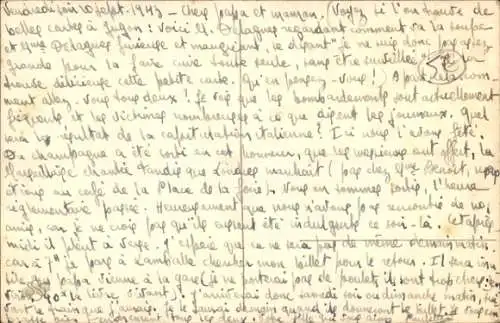 Vendredi soir 10 sept. 1943 - Chers papa et maman. (Voyez si l'on trouve de
belles cartes à Jugon : Voici M. Delagnes regardant comment va la soupe
et Mme Delagnes furieuse et maugréant "le dégoût" je ne suis donc pas assez
grande pour la faire cuire toute seule, sans être surveillée." On
trouve délicieuse cette petite carte. Qu'en pensez-vous!) A part cela, com
ment allez-vous tous deux? Je vois que les bombardements sont actuellement
fréquents et les victimes nombreuses à ce que disent les journaux. Quel
sera le résultat de la capitulation italienne? Ici nous l'avons fêté.
Du champagne a été sorti en cet honneur, que les messieurs ont offert, la
Marseillaise chantée tandis que l'heure marchait (pas chez Mme Benoit, mais
au café de la Place de la Foire). Nous en sommes sortis, l'heure
réglementaire passée. Heureusement que nous n'avons pas rencontré de nos
amis, car je ne crois pas qu'ils auraient été indulgents ce soir-là. Cet après-
midi il pleut à verse. J'espère que ce ne sera pas de même demain matin
car à 7h je pars à Lamballe chercher mon billet pour le retour. Il sera inu
tile que papa vienne à la gare (je ne porterai pas de poulet, ils sont trop chers:
40 F la livre vivant). J'arriverai donc samedi soir ou dimanche matin,
le train que j'aurai. Je le saurai demain quand ils donneront le billet. Je
tous les deux. Votre fille qui